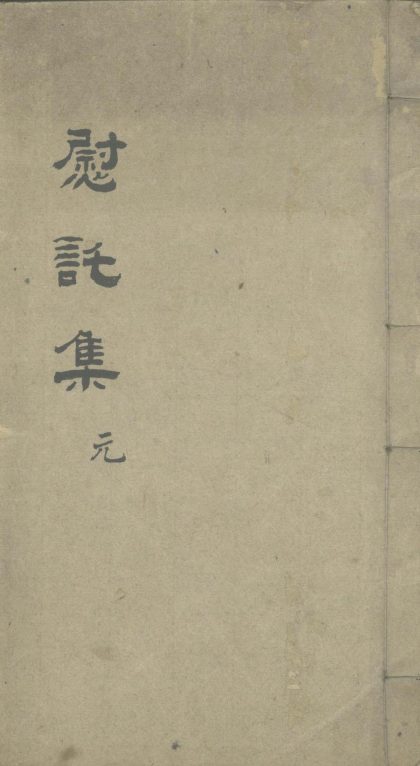 慰託集
元